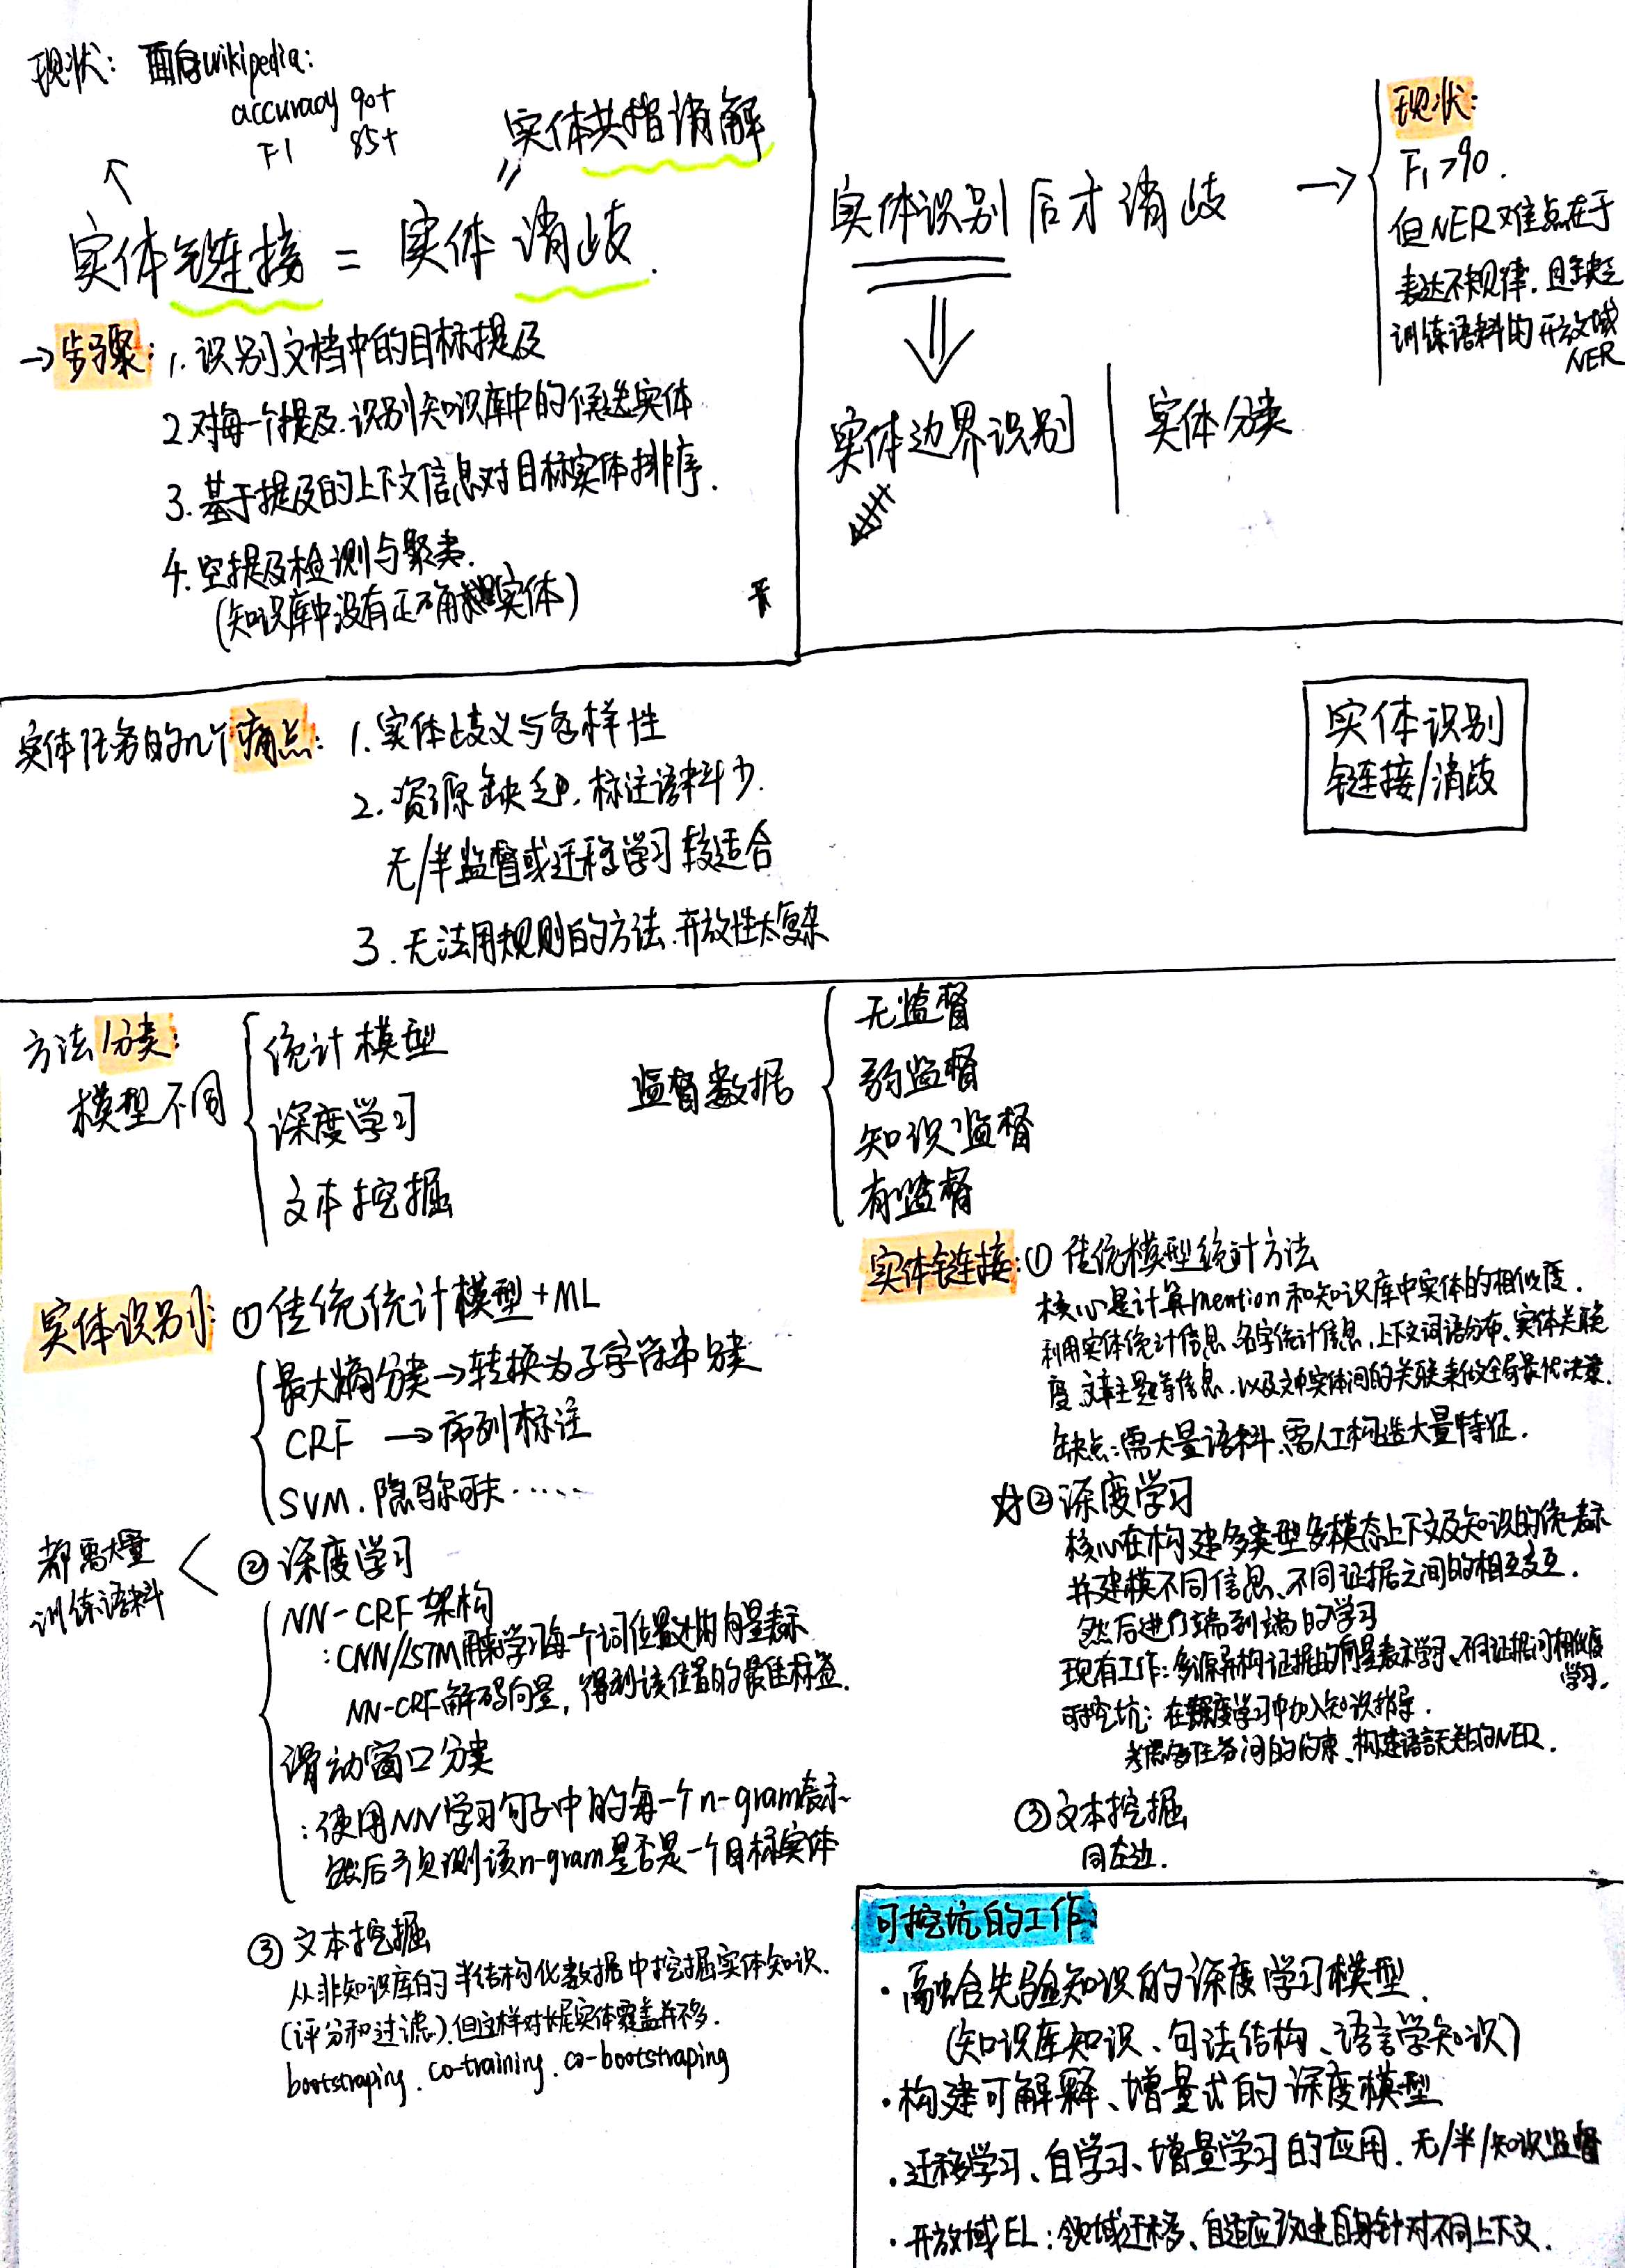 现状：面向wikipedia：
accuracy 90+
F1 85+
实体共指消解
实体链接 = 实体消歧.
→步骤：1. 识别文档中的目标提及
2. 对每一个提及.识别知识库中的候选实体
3. 基于提及的上下文信息对目标实体排序.
4. 空提及检测与聚类.
(知识库中没有正确实体)
实体识别后才消歧
实体边界识别 | 实体分类
→ 现状：
F1>90.
但NER难点在于
表达不规律.且缺乏
训练语料的开放域
NER
实体任务的几个痛点：1. 实体歧义与多样性
2. 资源缺乏,标注语料少.
无/半监督或迁移学习较适合
3. 无法用规则的方法.开放性太复杂
实体识别
链接/消歧
方法分类：
模型不同
统计模型
深度学习
文本挖掘
监督数据
无监督
弱监督
知识监督
有监督
实体识别：① 传统统计模型+ML
最大熵分类→转换为子字符串分类
CRF → 序列标注
SVM.隐马尔可夫......
都需大量
训练语料
② 深度学习
NN-CRF架构
：CNN/LSTM用来学习每一个词位置处的向量表示
NN-CRF解码向量，得到该位置的最佳标签.
滑动窗口分类
：使用NN学习句子中的每一个n-gram表示
然后预测该n-gram是否是一个目标实体
③ 文本挖掘
从非知识库的半结构化数据中挖掘实体知识.
(评分和过滤).但这样对长尾实体覆盖并不多.
bootstraping.co-training.co-bootstraping
实体链接：① 传统模型统计方法
核心是计算mention和知识库中实体的相似度.
利用实体统计信息、名字统计信息、上下文词语分布、实体关联
度、文章主题等信息.以及文中实体间的关联来做全局最优决策.
缺点：需大量语料.需人工构造大量特征.
☆② 深度学习
核心在构建多类型多模态上下文及知识的统一表示
并建模不同信息、不同证据之间的相互交互.
然后进行端到端的学习
现有工作：多源异构证据的向量表示学习、不同证据间相似度
学习.
可挖坑：在深度学习中加入知识指导.
考虑多任务间的约束、构建语言无关的NER.
③ 文本挖掘
同左边.
可挖坑的工作：
· 融合先验知识的深度学习模型.
(知识库知识、句法结构、语言学知识)
· 构建可解释、增量式的深度模型
· 迁移学习、自学习、增量学习的应用.无/半/知识监督
· 开放域EL：领域迁移、自适应改进自身针对不同上下文.